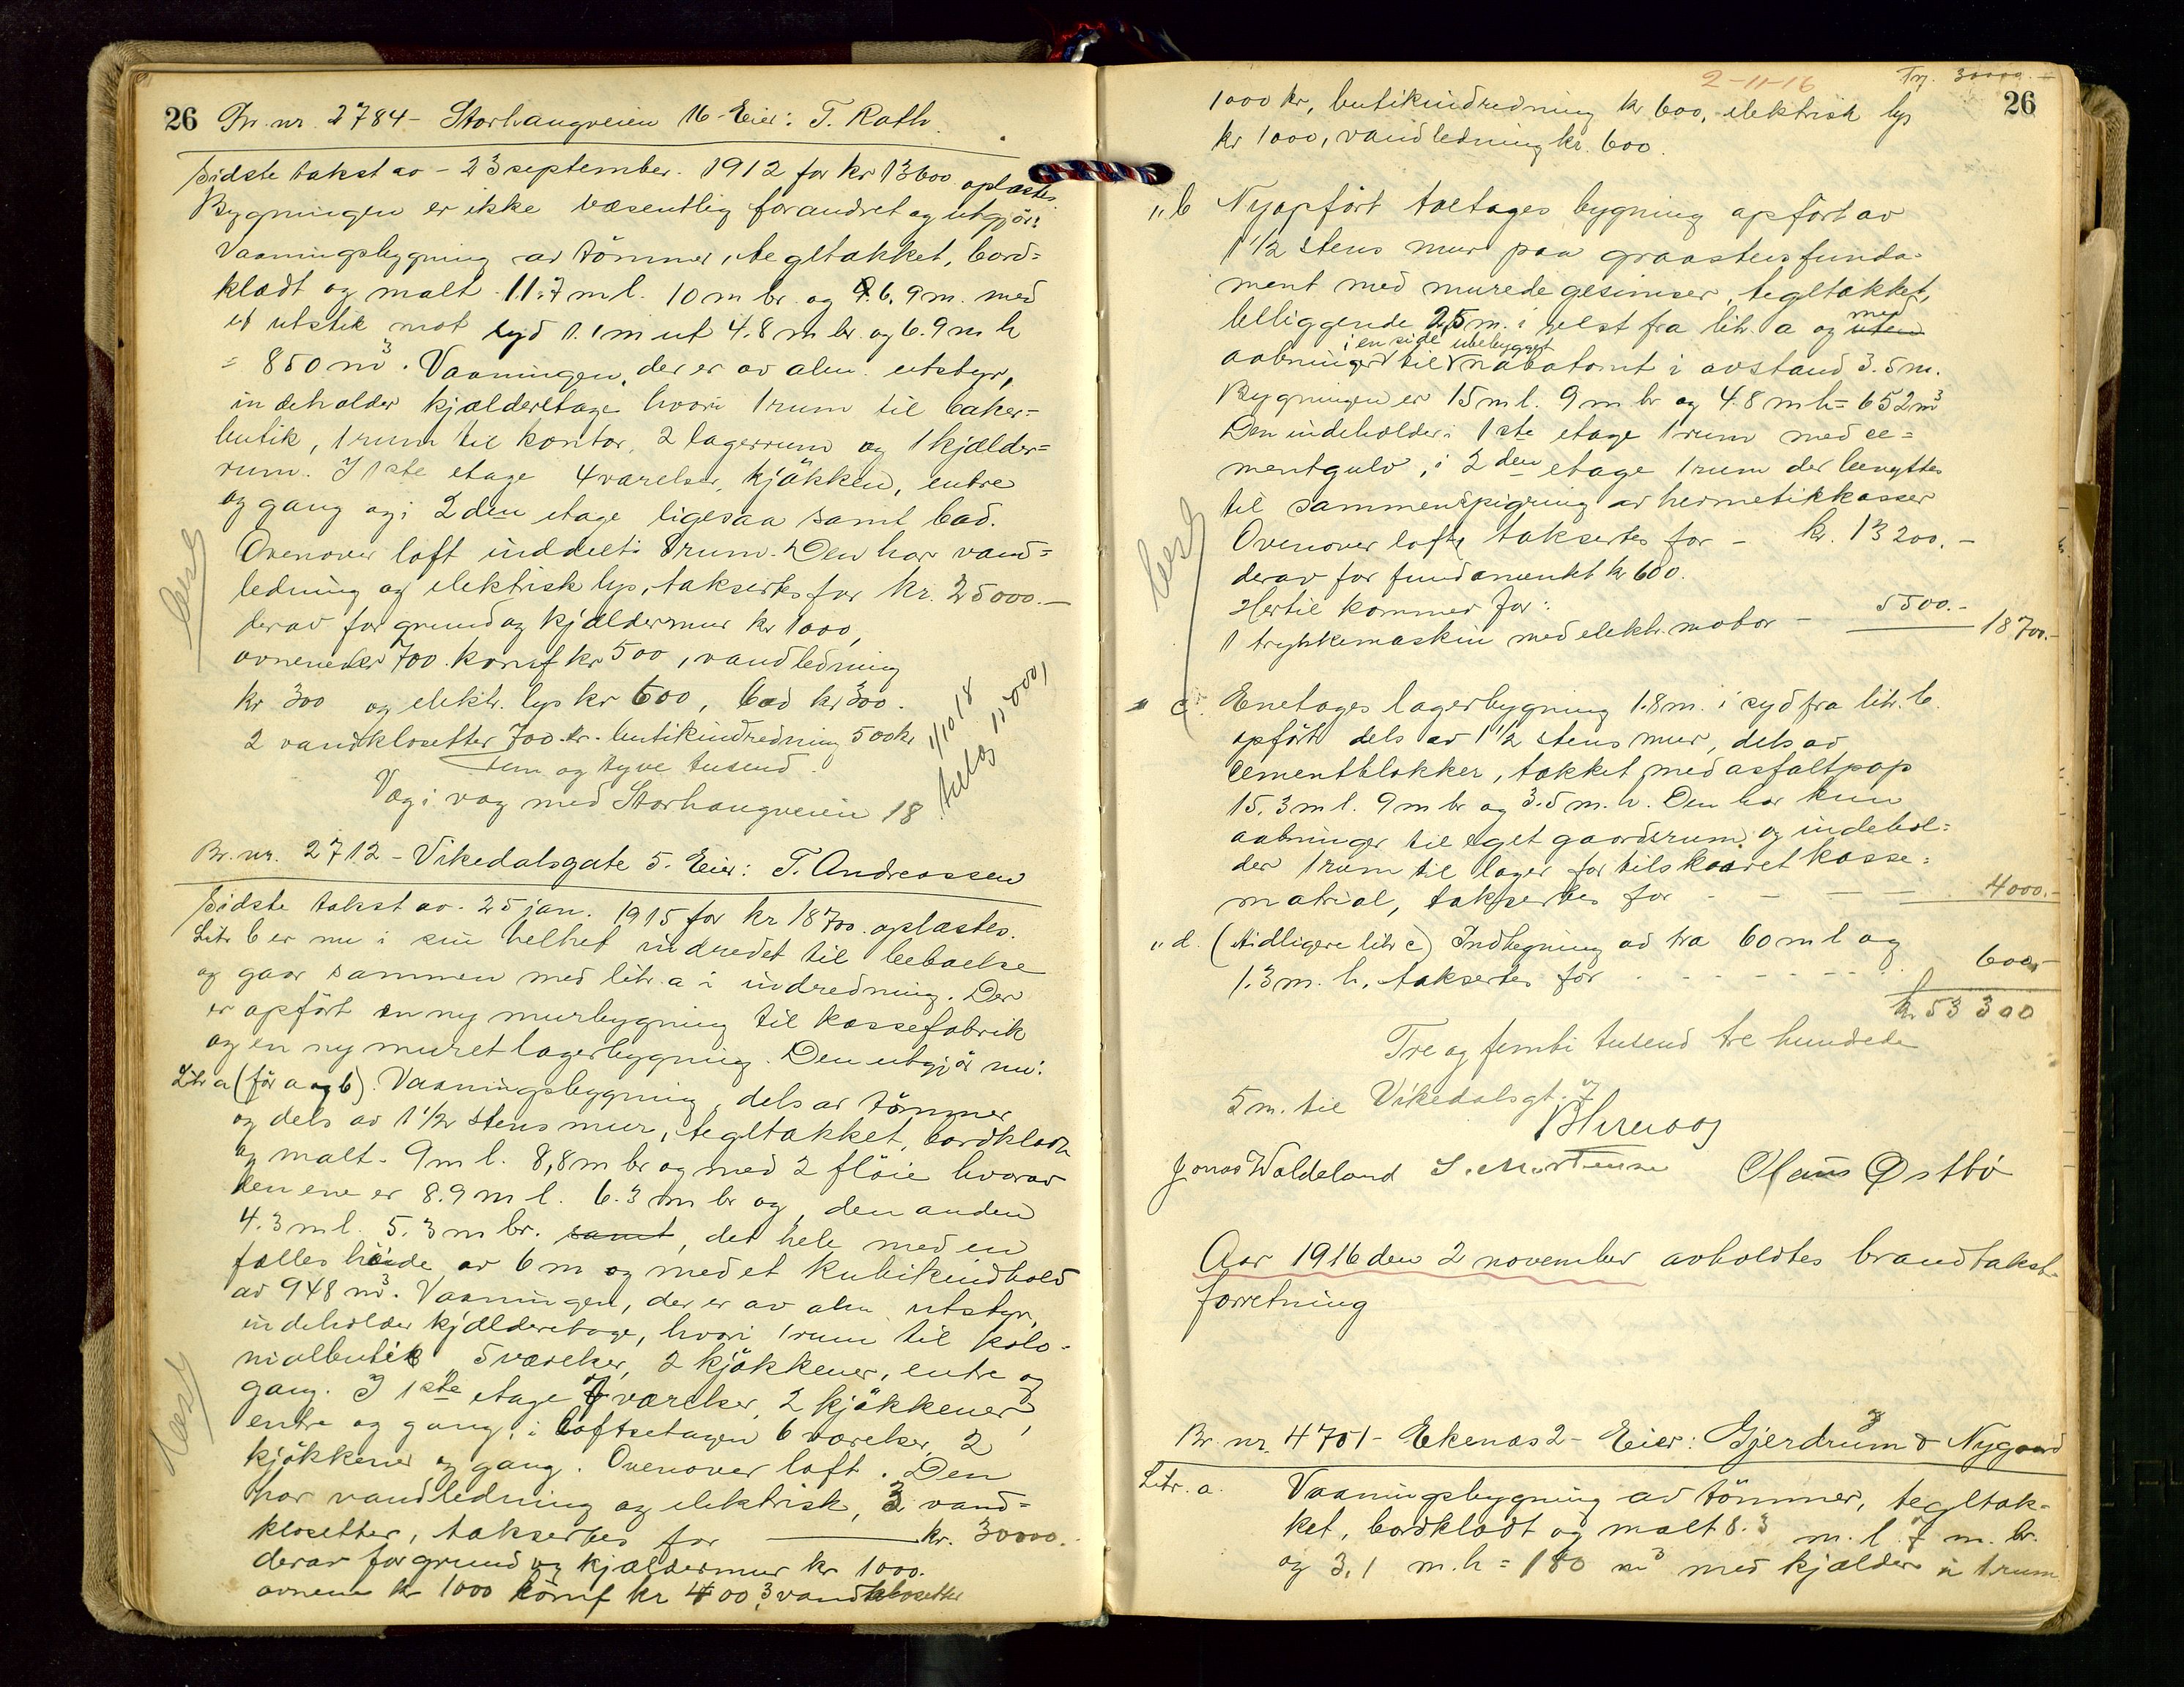 26 Br. nr. 2784 - Storhaugveien 16 - Eier: T. Rath.
Sidste takst av - 23 september. 1912 for kr 13600 oplæstes.
Bygningen er ikke væsentlig forandret og utgjör:
Vaaningsbygning av tömmer, tegltækket, bord=
klædt og malt. 11.7 m l. 10 m br. og 6.9 m. med
et utstik mot syd 1.1 m ut 4.8 m br. og 6.9 m h
= 850 m3. Vaaningen, der er av alm. utstyr,
indeholder kjælderetage hvori 1 rum til baker=
butik, 1 rum til kontor, 2 lagerrum og 1 kjælder=
rum. I 1ste etage 4 værelser, kjökken, entre
og gang og i 2den etage ligesaa samt bad.
Ovenover loft inddelt i 8 rum. Den har vand=
ledning og elektrisk lys, taksertes for kr. 25000.—
derav for grund og kjældermur kr 1000,
ovnene kr 700. komf kr 500, vandledning
kr 300 og elektr. lys kr 600, bad kr 300.
2 vandklosetter 700 kr. butikindredning 500 kr
Fem og tyve tusend.
Væg i væg med Storhaugveien 18.
1/10 18
tillæg 11000,
læst
Br. nr. 2712 - Vikedalsgate 5. Eier: T. Andreassen
Sidste takst av. 25 jan. 1915 for kr 18700. oplæstes.
Litr b er nu i sin helhet indredet til beboelse
og gaar sammen med litr. a i indredning. Der
er opfört en ny murbygning til kassefabrik
og en ny muret lagerbygning. Den utgjör nu:
Litr a (för a og b). Vaaningsbygning, dels av tömmer
og dels av 1 1/2 stens mur, tegltækket, bordklædt
og malt. 9 m l. 8,8 m br og med 2 flöie hvorav
den ene er 8.9 m l. 6.3 m br og, den anden
4.3 m l. 5.3 m br. samt, det hele med en
fælles höide av 6 m og med et kubikindhold
av 948 m3. Vaaningen, der er av alm utstyr,
indeholder kjælderetage, hvori 1 rum til kolo-
nialbutik 5 værelser, 2 kjökkener, entre og
gang. I 1ste etage 7 værelser, 2 kjökkener,
entre og gang, i loftsetagen 6 værelser, 2
kjökkener og gang. Ovenover loft. Den
har vandledning og elektrisk, 3 vand=
klosetter, taksertes for —— kr. 30000.
derav for grund og kjældermur kr 1000.
ovnene kr 1000 komf kr 400, 3 vandklosetter
læst
2-11-16
Tr. 30000.—
26
1000 kr, butikindredning kr 600, elektrisk lys
kr 1000, vandledning kr. 600.
" b Nyopfört toetages bygning opfört av
1 1/2 stens mur paa graastensfunda-
ment med murede gesimser, tegltækket,
beliggende 2,5 m. i vest fra litr. a og uten med
aabninger i en side til ubebygget nabotomt i avstand 3.5 m.
Bygningen er 15 m l. 9 m br og 4.8 m h = 652 m3
Den indeholder i 1ste etage 1 rum med ce=
mentgulv, i 2den etage 1 rum der benyttes
til sammenspigring av hermetikkasser
Ovenover loft, taksertes for - kr. 13200.-
derav for fundamentet kr 600.
Hertil kommer for:
1 trykkemaskin med elektr. motor - 5500.- 18700.-
læst
" c. Enetages lagerbygning 1.8 m. i syd fra litr. b.
opfört dels av 1 1/2 stens mur, dels av
cementblokker, tækket med asfaltpap
15.3 m l. 9 m br og 3.5 m. h. Den har kun
aabninger til eget gaardsrum og indehol=
der 1 rum til lager for tilskaaret kasse=
matrial, taksertes for - - — — 4000.-
" d. (tidligere litr c) Indhegning av træ 60 m l og
1.3 m. h. taksertes for - - - - - - 600.-
kr 53300
Tre og femti tusend tre hundrede
5 m. til Vikedalsgt. 7
Jonas Waldeland S. Mortensen Claus Østbö
Aar 1916 den 2 november avholdtes brandtakst-
forretning
Br. nr. 4701 - Ekenæs 2 - Eier: Gjerdrum & Nygaard
Litr. a. Vaaningsbygning av tömmer, tegltæk-
ket, bordklædt og malt 8.3 m. l. 7 m. br.
og 3,1 m. h = 180 m3 med kjælder i 1 rum